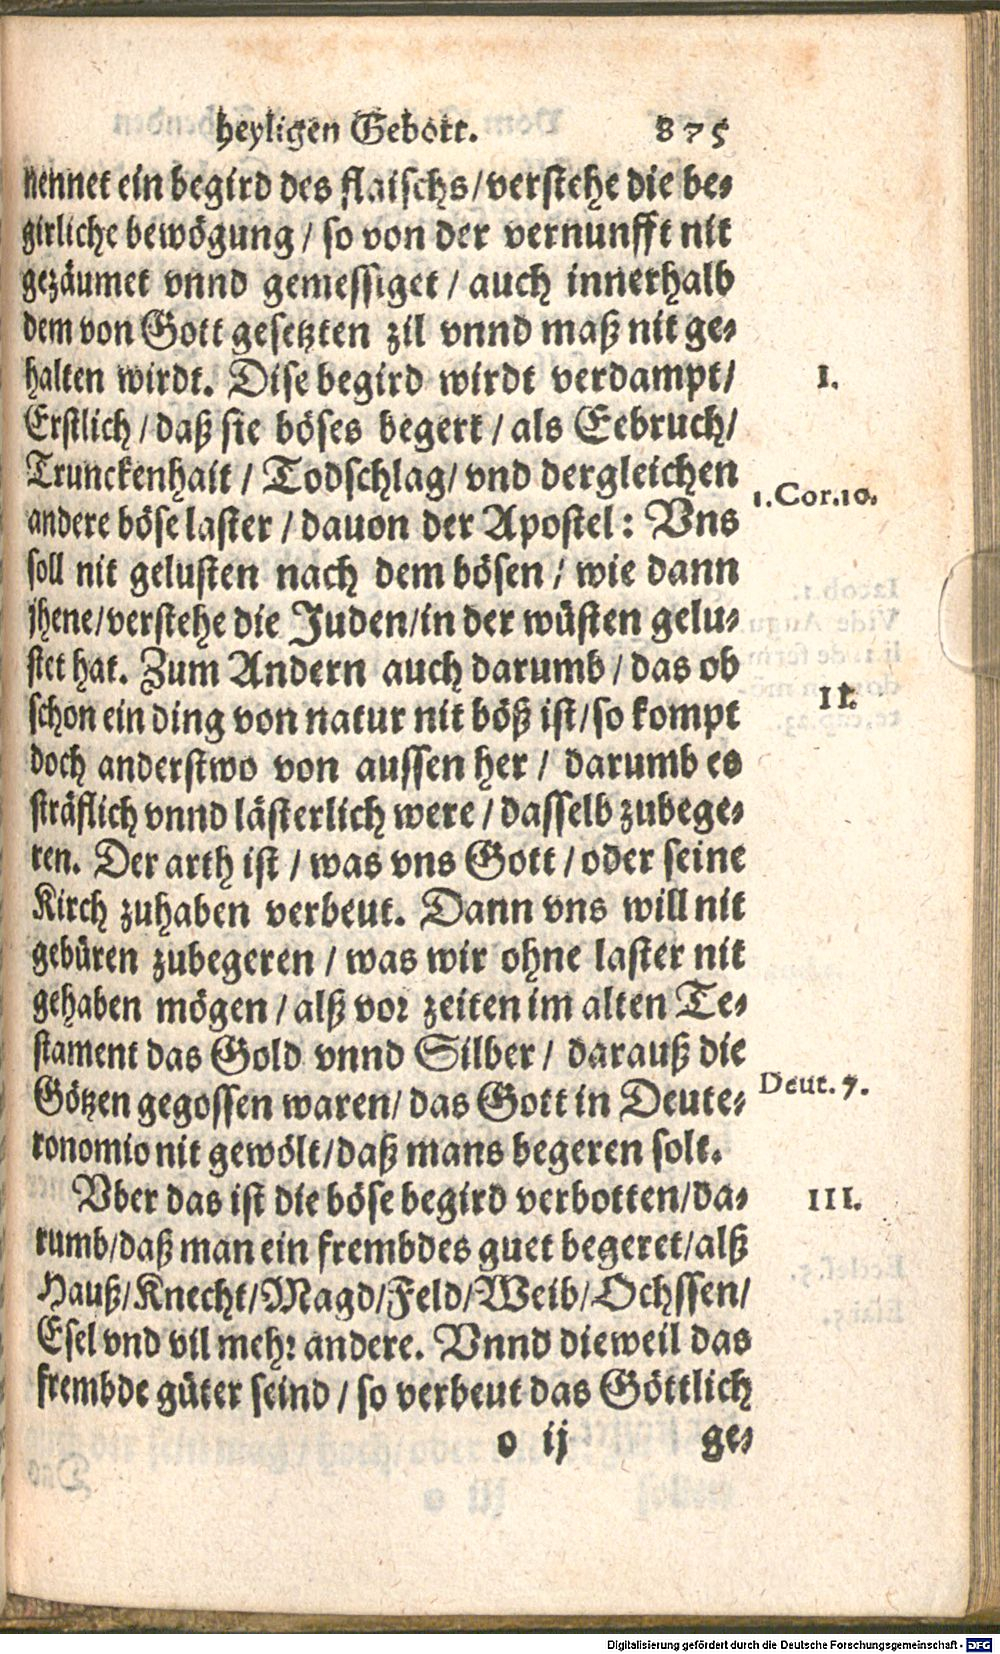 heyligen Gebott. 875
nennet ein begird des flaischs/verstehe die be-
girliche bewögung / so von der vernunfft nit
gezäumet vnnd gemessiget / auch innerhalb
dem von Gott gesetzten zil vnnd maß nit ge-
halten wirdt. Dise begird wirdt verdampt/
I.
Erstlich / daß sie böses begert / als Eebruch/
Trunckenhait / Todschlag/ vnd dergleichen
1. Cor. 10.
andere böse laster / dauon der Apostel: Vns
soll nit gelusten nach dem bösen / wie dann
jhene/verstehe die Juden/in der wüsten gelu-
stet hat. Zum Andern auch darumb / das ob
II.
schon ein ding von natur nit böß ist/so kompt
doch anderstwo von aussen her / darumb es
sträflich vnnd lästerlich were / dasselb zubege-
ren. Der arth ist / was vns Gott / oder seine
Kirch zuhaben verbeut. Dann vns will nit
gebüren zubegeren / was wir ohne laster nit
gehaben mögen / alß vor zeiten im alten Te-
stament das Gold vnnd Silber / darauß die
Deut. 7.
Götzen gegossen waren/ das Gott in Deute-
ronomio nit gewölt/daß mans begeren solt.
Vber das ist die böse begird verbotten/da-
III.
rumb/daß man ein frembdes guet begeret/alß
Hauß/Knecht/Magd/Feld/Weib/Ochssen/
Esel vnd vil mehr andere. Vnnd dieweil das
frembde güter seind / so verbeut das Göttlich
o ij ge-
Digitalisierung gefördert durch die Deutsche Forschungsgemeinschaft - DFG